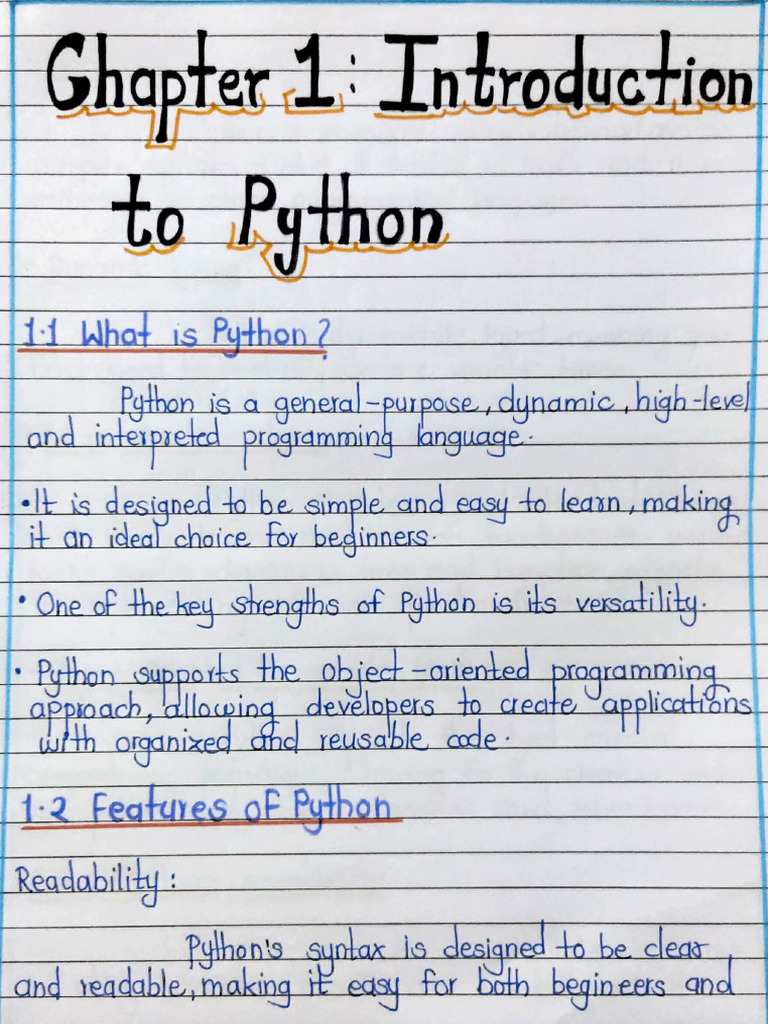 Chapter 1: Introduction
to Python
1.1 What is Python?
Python is a general-purpose, dynamic, high-level
and interpreted programming language.
•It is designed to be simple and easy to learn, making
it an ideal choice for beginners.
• One of the key strengths of Python is its versatility.
• Python supports the object-oriented programming
approach, allowing developers to create applications
with organized and reusable code.
1.2 Features of Python
Readability:
Python's syntax is designed to be clear
and readable, making it easy for both begineers and